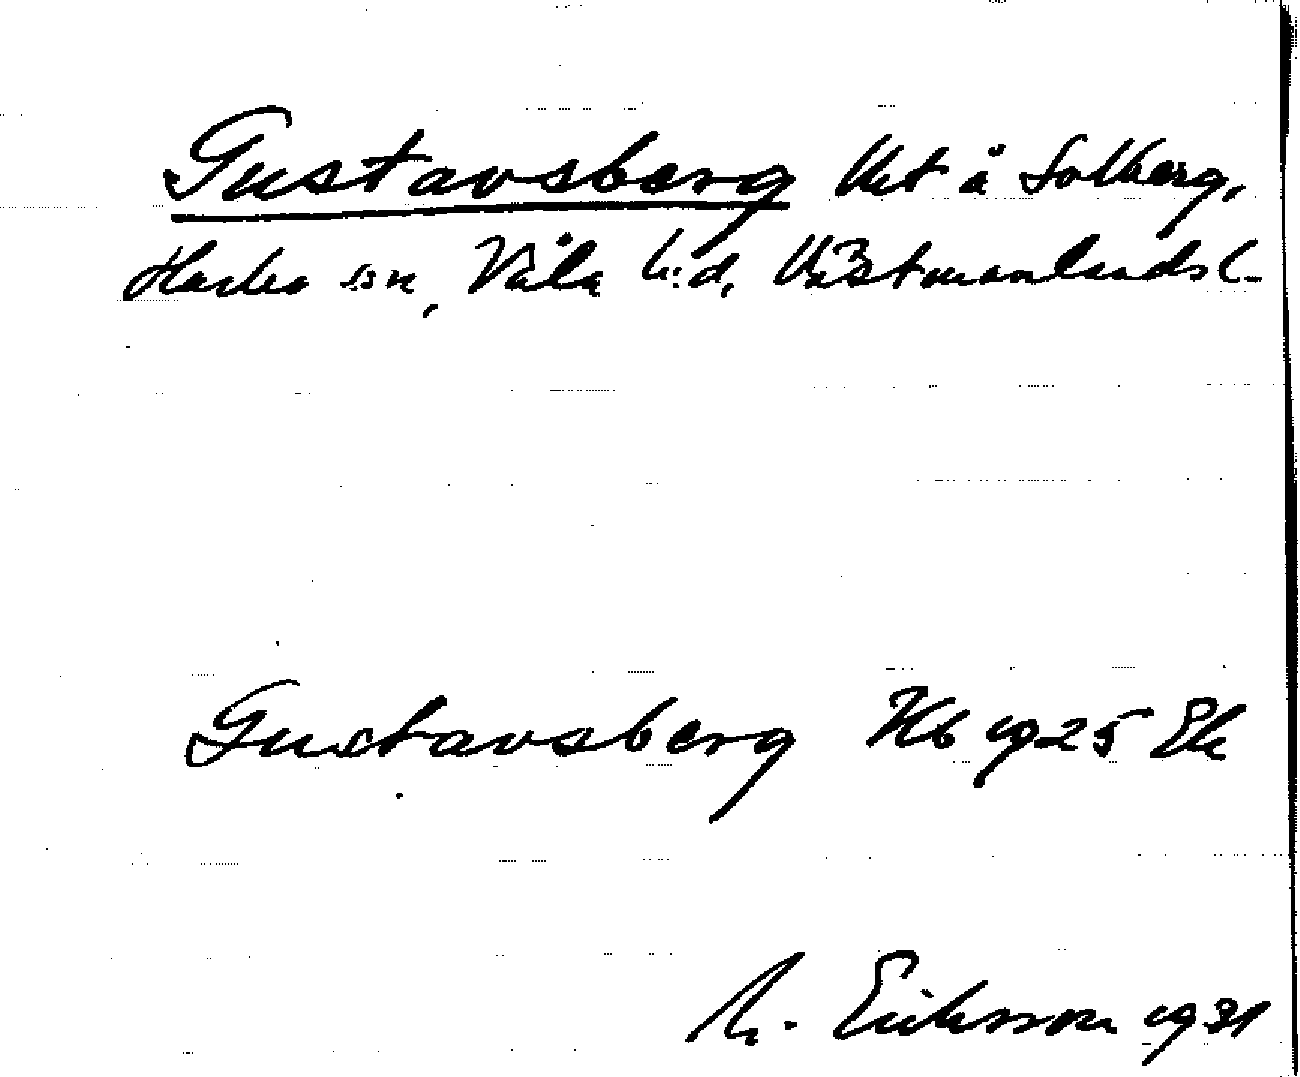 Gustavsberg lht å Solberg,
Harbo sn, Våla hd, Västmanlands l.
Gustavsberg Hb 1925 Ek
M. Eriksson 1931